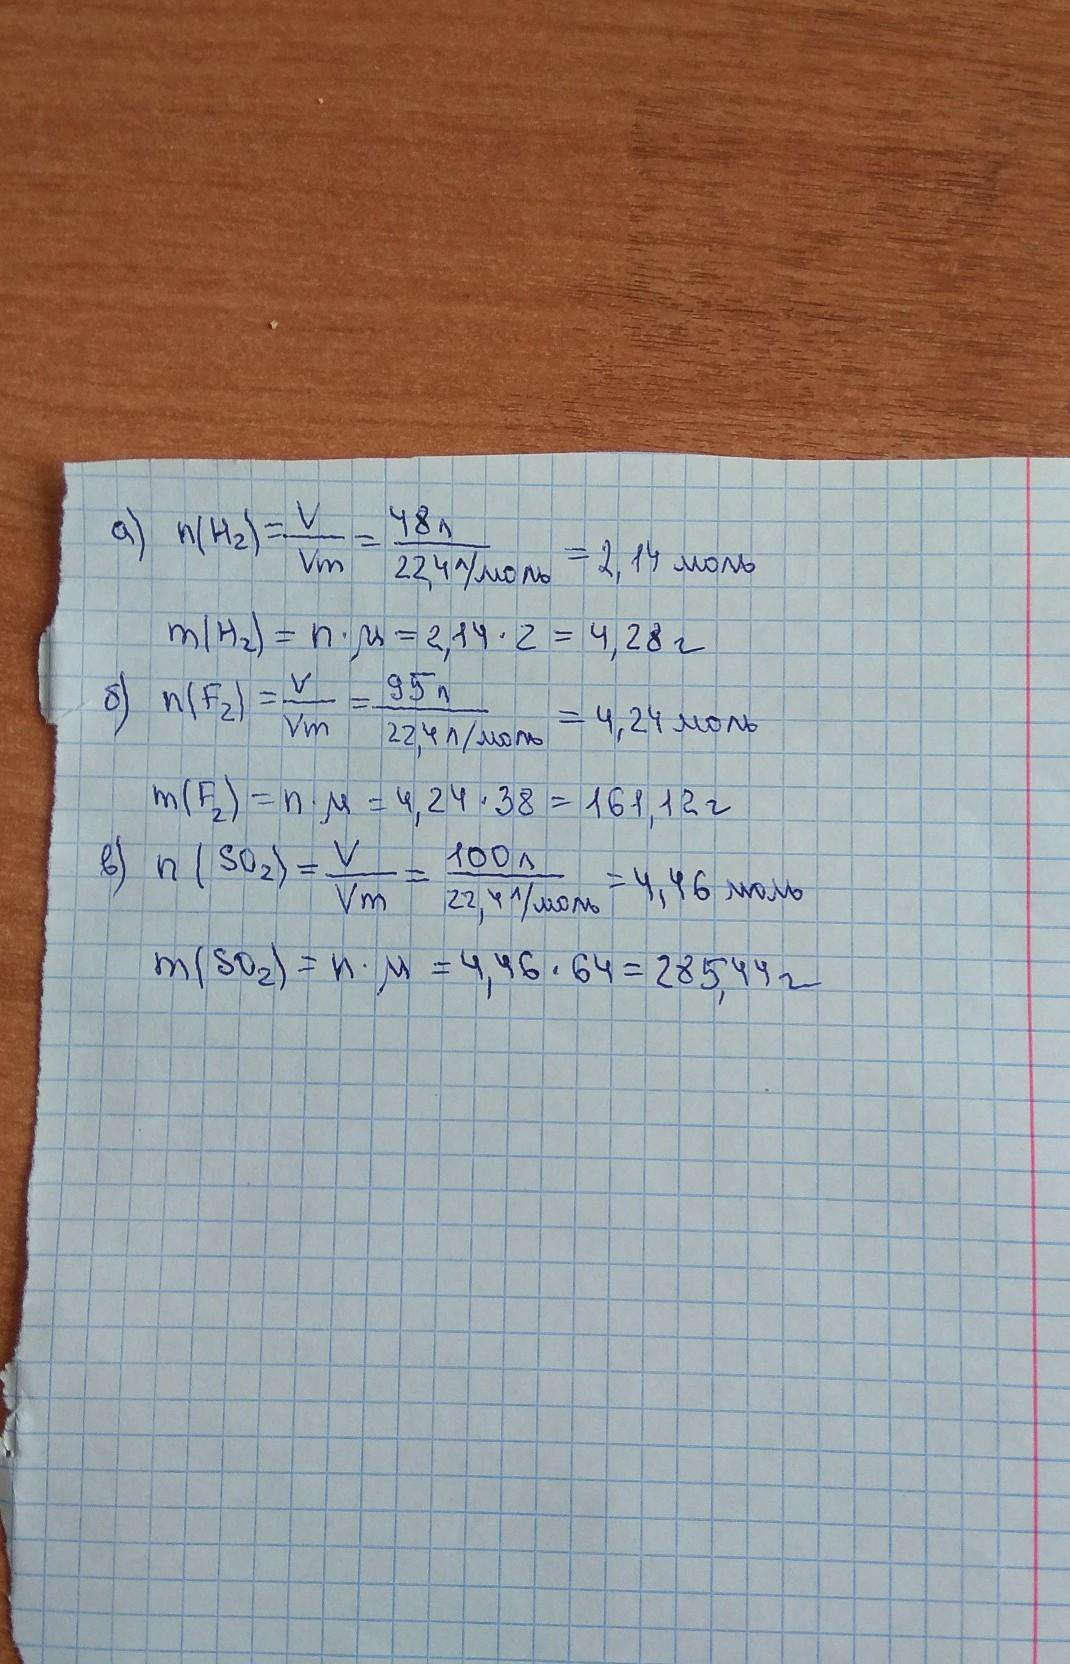 а) n(H₂) = V/Vm = 48л/22,4л/моль = 2,14 моль
m(H₂) = n·μ = 2,14·2 = 4,28 г
б) n(F₂) = V/Vm = 95л/22,4л/моль = 4,24 моль
m(F₂) = n·μ = 4,24·38 = 161,12 г
в) n(SO₂) = V/Vm = 100л/22,4л/моль = 4,46 моль
m(SO₂) = n·μ = 4,46·64 = 285,44 г